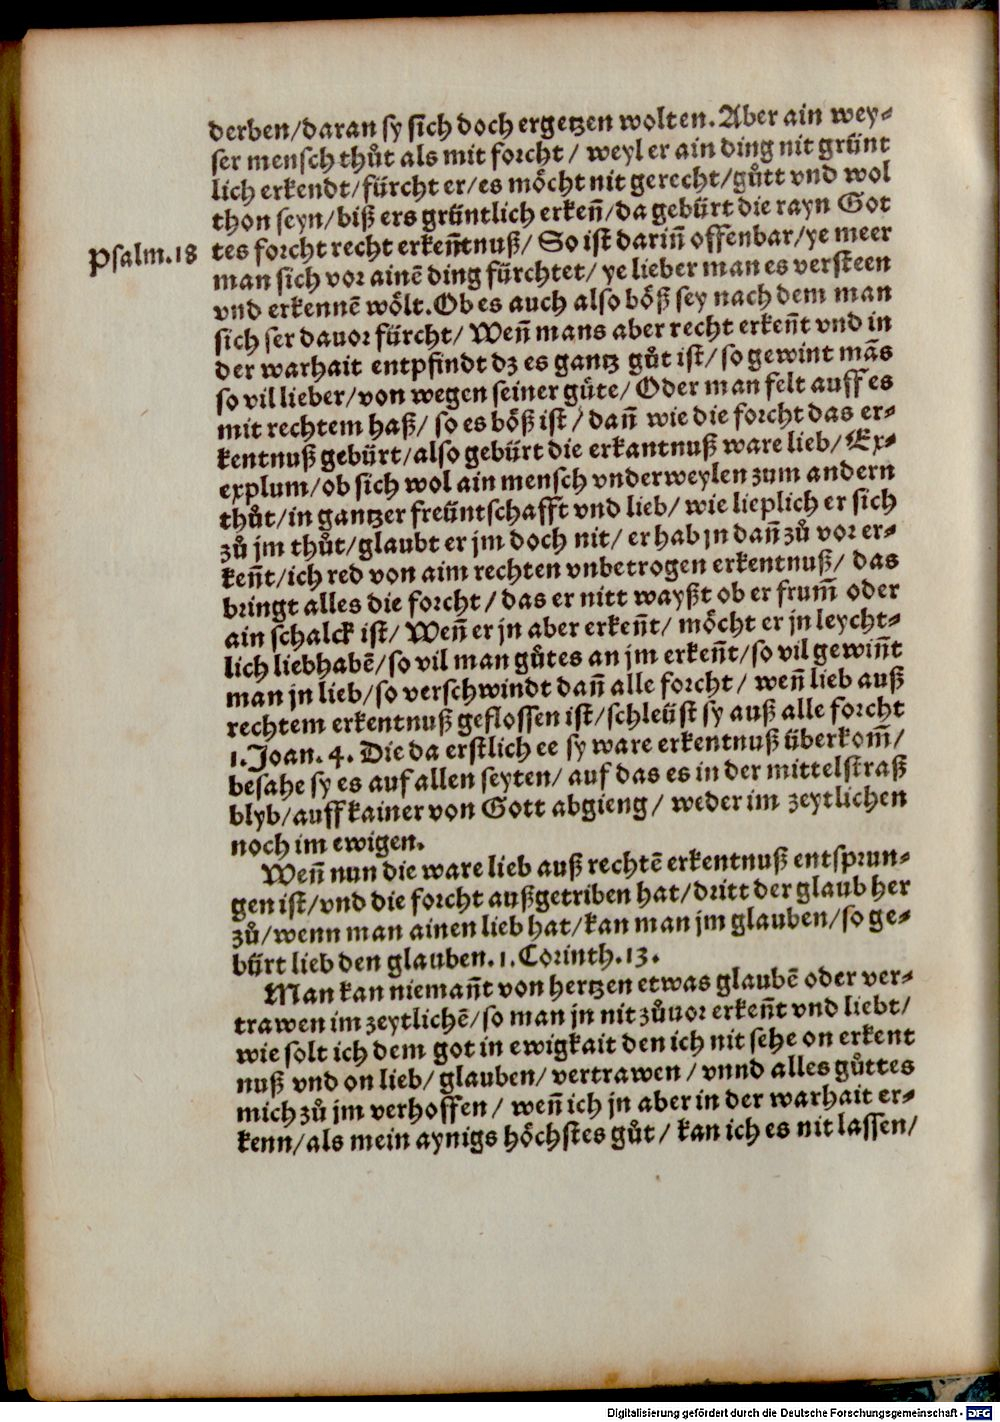 derben/daran sy sich doch ergetzen wolten. Aber ain wey-
ser mensch thůt als mit forcht / weyl er ain ding nit grünt
lich erkendt/fürcht er/es möcht nit gerecht/gůtt vnd wol
thon seyn/biß ers grüntlich erkeñ/da gebürt die rayn Got
Psalm.18
tes forcht recht erkeñtnuß/ So ist dariñ offenbar/ye meer
man sich vor ainē ding fürchtet/ ye lieber man es versteen
vnd erkennē wölt. Ob es auch also böß sey nach dem man
sich ser dauor fürcht/ Weñ mans aber recht erkeñt vnd in
der warhait entpfindt dz es gantz gůt ist/ so gewint mās
so vil lieber/von wegen seiner gůte/ Oder man felt auff es
mit rechtem haß/ so es böß ist / dañ wie die forcht das er-
kentnuß gebürt/also gebürt die erkantnuß ware lieb/ Ex-
explum/ob sich wol ain mensch vnderweylen zum andern
thůt/in gantzer freüntschafft vnd lieb/ wie lieplich er sich
zů jm thůt/glaubt er jm doch nit/ er hab jn dañ zů vor er-
keñt/ich red von aim rechten vnbetrogen erkentnuß/ das
bringt alles die forcht / das er nitt wayßt ob er frum̄ oder
ain schalck ist/ Weñ er jn aber erkeñt/ möcht er jn leycht-
lich liebhabē/so vil man gůtes an jm erkeñt/so vil gewiñt
man jn lieb/so verschwindt dañ alle forcht / weñ lieb auß
rechtem erkentnuß geflossen ist/schleüst sy auß alle forcht
1. Joan. 4. Die da erstlich ee sy ware erkentnuß überkom̄/
besahe sy es auf allen seyten/ auf das es in der mittelstraß
blyb/auff kainer von Gott abgieng / weder im zeytlichen
noch im ewigen.
Weñ nun die ware lieb auß rechtē erkentnuß entsprun-
gen ist/vnd die forcht außgetriben hat/dritt der glaub her
zů/wenn man ainen lieb hat/kan man jm glauben/so ge-
bürt lieb den glauben. 1. Corinth. 13.
Man kan niemañt von hertzen etwas glaubē oder ver-
trawen im zeytlichē/so man jn nit zůuor erkeñt vnd liebt/
wie solt ich dem got in ewigkait den ich nit sehe on erkent
nuß vnd on lieb/ glauben/ vertrawen / vnnd alles gůttes
mich zů jm verhoffen / weñ ich jn aber in der warhait er-
kenn/als mein aynigs höchstes gůt/ kan ich es nit lassen/
Digitalisierung gefördert durch die Deutsche Forschungsgemeinschaft - DFG